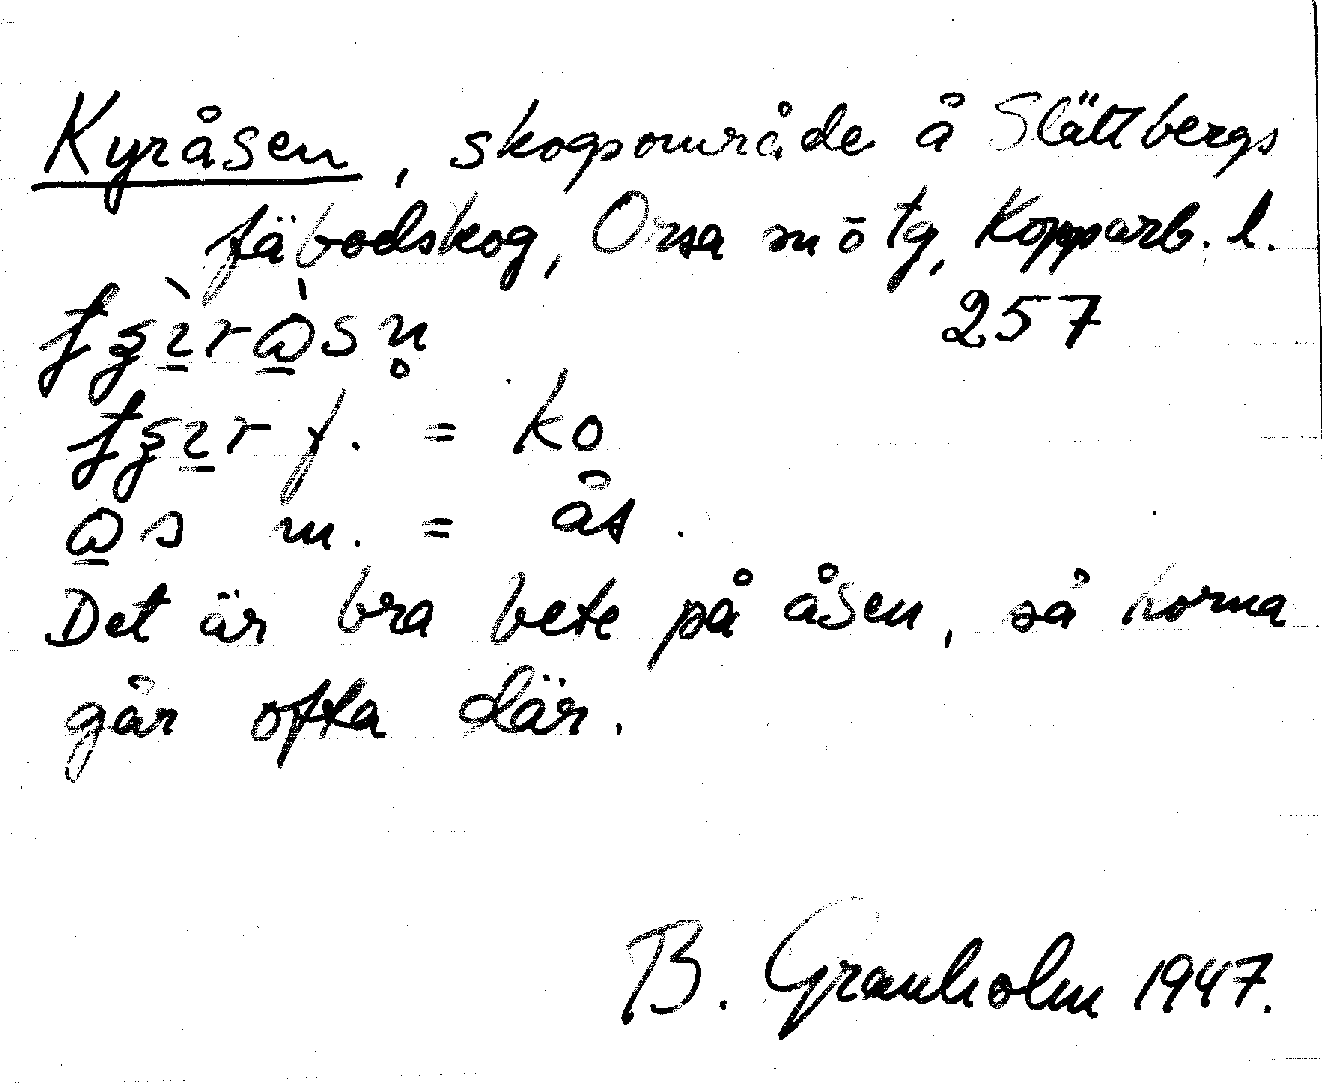 Kyråsen, skogsområde å Slättbergs
fäbodskog, Orsa mō tg, Kopparb. l.
257
f. = ko
ås m. = ås.
Det är bra bete på åsen, så korna
går ofta där.
B. Granholm 1947.